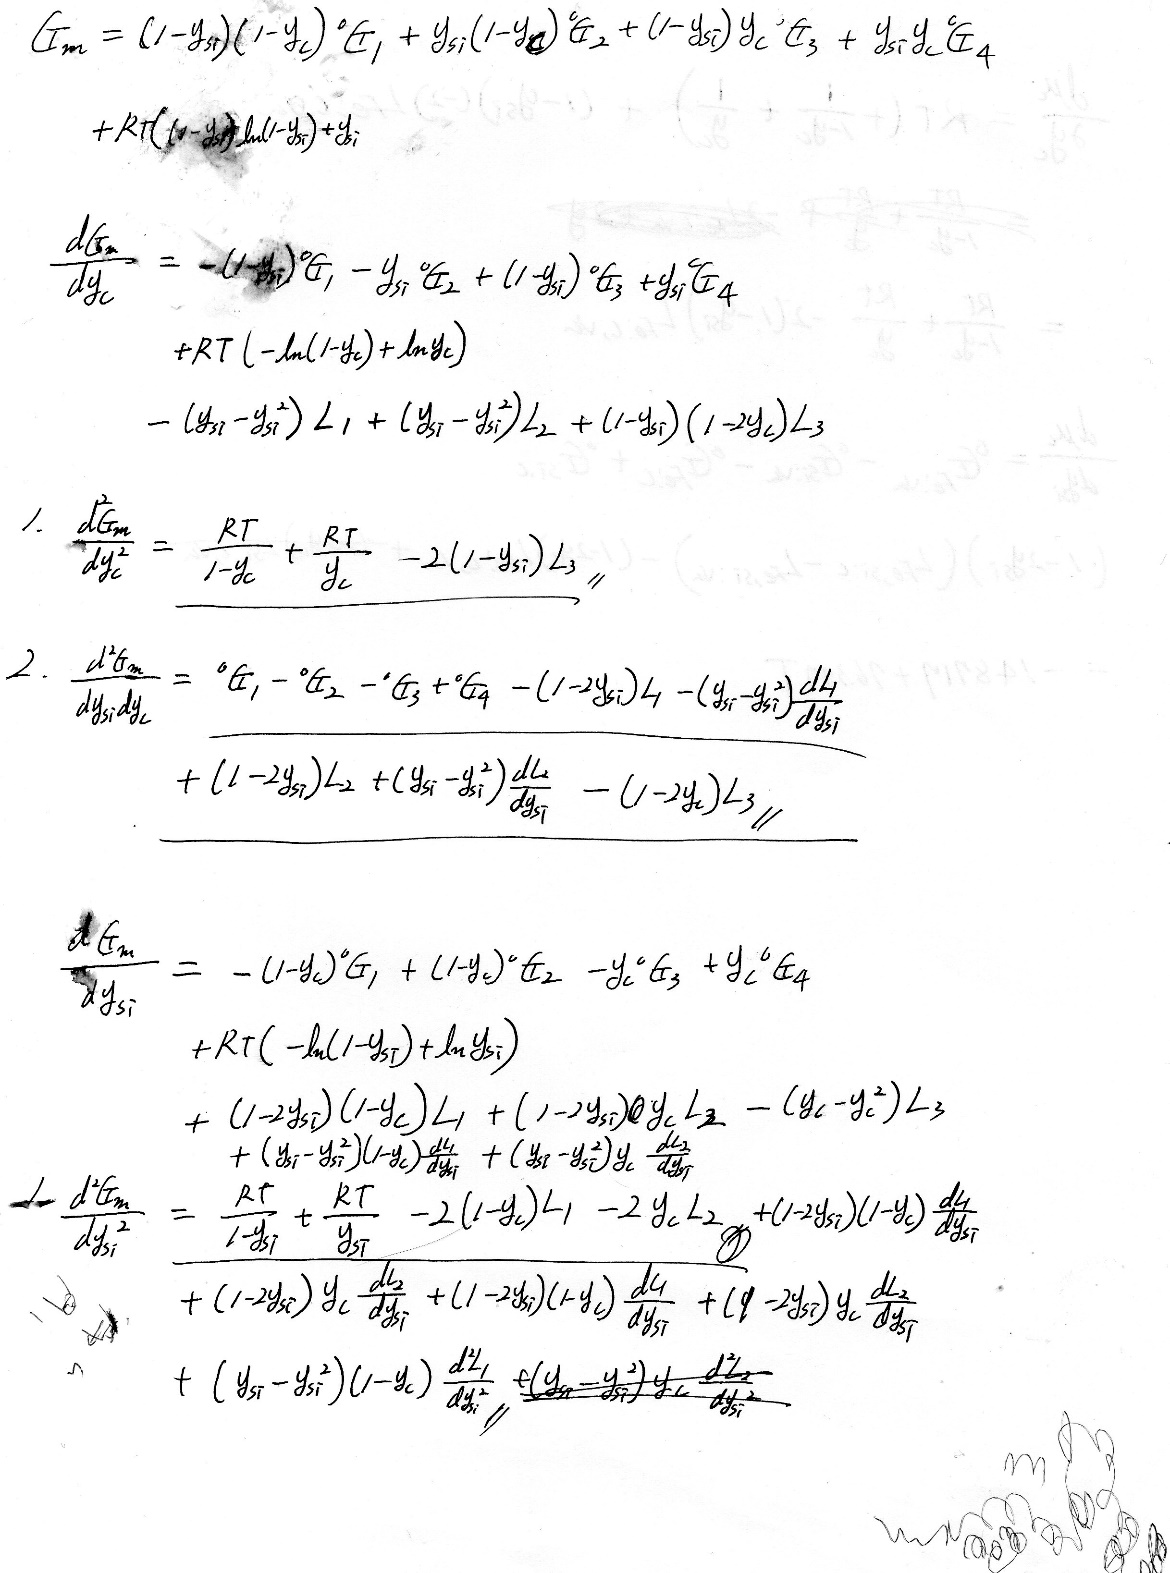 Gm = (1-ysi)(1-yc)°G1 + ysi(1-yc)°G2 + (1-ysi)yc°G3 + ysi yc°G4
+RT((1-ysi)ln(1-ysi)+ysi
dGm/dyc = -(1-ysi)°G1 - ysi°G2 + (1-ysi)°G3 + ysi°G4
+RT(-ln(1-yc)+lnyc)
-(ysi-ysi²)L1 + (ysi-ysi²)L2 + (1-ysi)(1-2yc)L3
1. d²Gm/dyc² = RT/1-yc + RT/yc - 2(1-ysi)L3 //
2. d²Gm/dysidyc = °G1 - °G2 - °G3 + °G4 - (1-2ysi)L1 - (ysi-ysi²)dL1/dysi
+ (1-2ysi)L2 + (ysi-ysi²)dL2/dysi - (1-2yc)L3 //
dGm/dysi = -(1-yc)°G1 + (1-yc)°G2 - yc°G3 + yc°G4
+RT(-ln(1-ysi)+lnysi)
+ (1-2ysi)(1-yc)L1 + (1-2ysi)ycL2 - (yc-yc²)L3
+ (ysi-ysi²)(1-yc)dL1/dysi + (ysi-ysi²)yc dL2/dysi
d²Gm/dysi² = RT/1-ysi + RT/ysi - 2(1-yc)L1 - 2ycL2 + (1-2ysi)(1-yc)dL1/dysi
+ (1-2ysi)yc dL2/dysi + (1-2ysi)(1-yc)dL1/dysi + (1-2ysi)yc dL2/dysi
+ (ysi-ysi²)(1-yc)d²L1/dysi² // +(ysi-ysi²)yc d²L2/dysi²